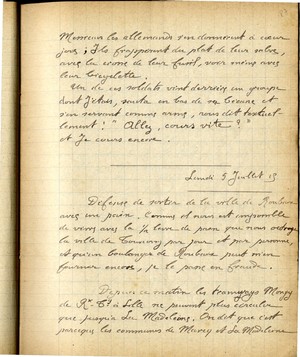 Messieurs les allemands s'en donnèrent à cœur
joie ; Ils frappèrent du plat de leur sabre,
avec la crosse de leur fusil, voir même avec
leur bayonette.
Un de ces soldats vint derrière un groupe
dont j'étais, sauta en bas de sa bécane et
s'en servant comme arme, nous dit textuel-
lement : " Allez, cours vite ! "
et je cours encore.
Lundi 5 Juillet 15
Défense de sortir de la ville de Roubaix
avec un pain. Comme il nous est impossible
de vivre avec la 1/2 livre de pain que nous octroye
la ville de Tourcoing par jour et par personne,
et qu'un boulanger de Roubaix peut m'en
fournir encore, je le passe en fraude.
Depuis ce matin les tramways Mongy
de Rx Tg à Lille ne peuvent plus circuler
que jusqu'à La Madeleine. On dit que c'est
parceque les communes de Marcq et La Madeleine